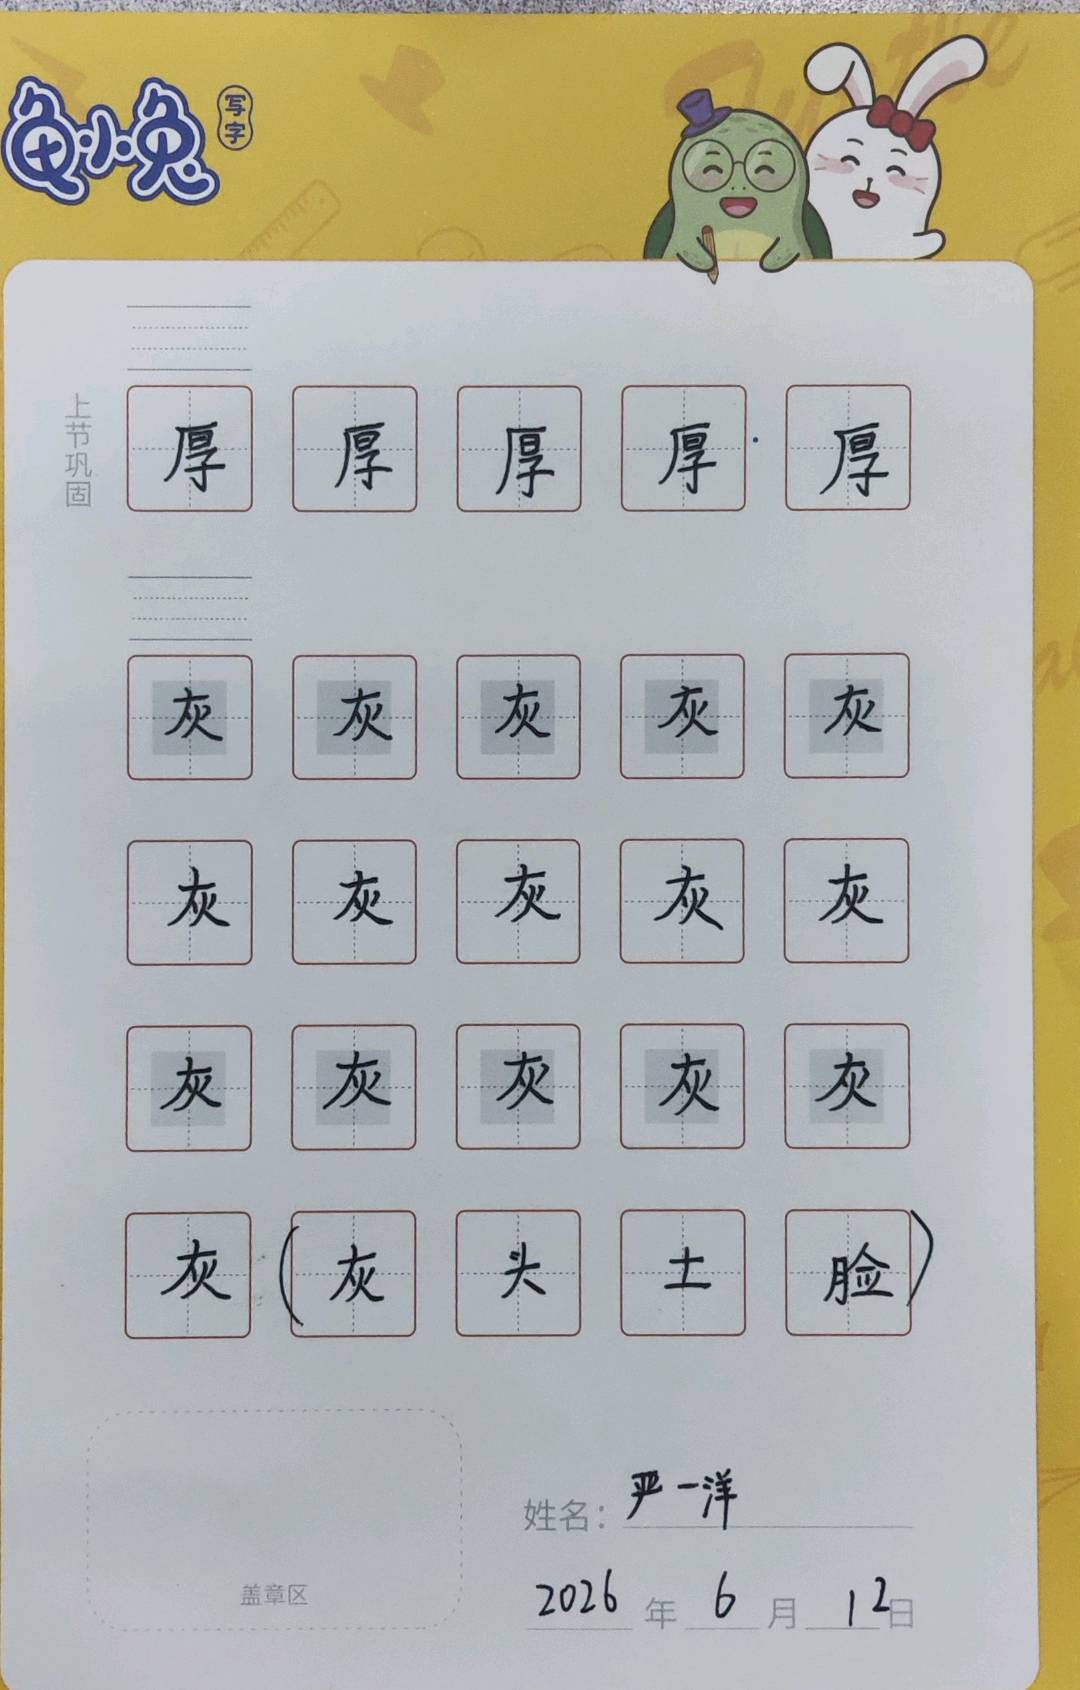 龟小兔 写字
上节巩固
厚 厚 厚 厚 厚
灰 灰 灰 灰 灰
灰 灰 灰 灰 灰
灰 灰 灰 灰 灰
灰 (灰 头 土 脸)
姓名: 严一洋
盖章区
2026 年 6 月 12 日